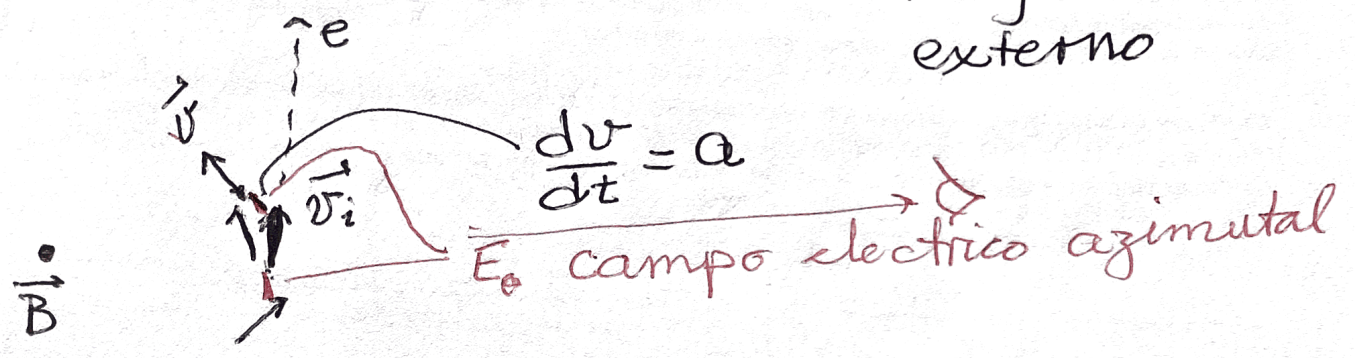 externo
e
v⃗
dv/dt = a
v⃗ᵢ
E_θ campo electrico azimutal
B⃗